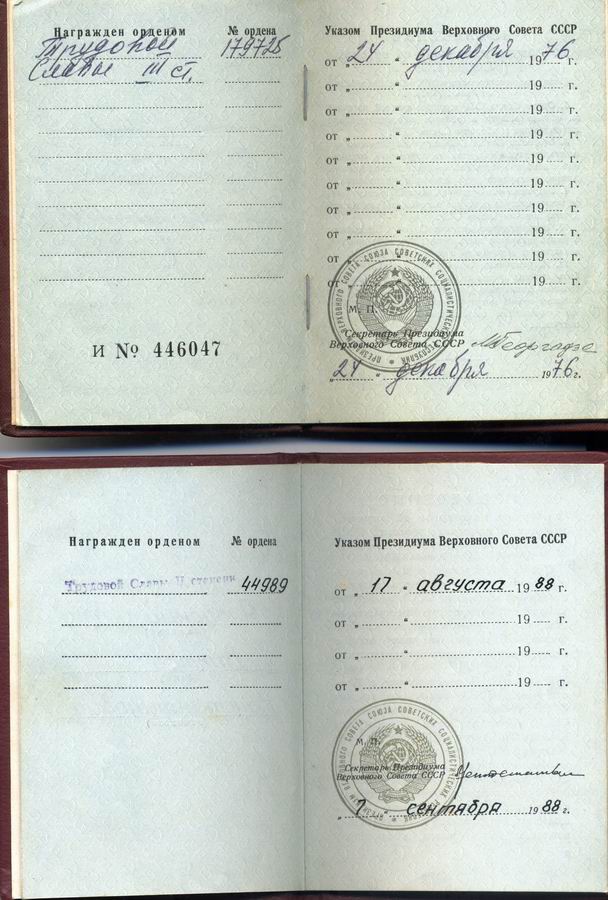 Награжден орденом № ордена
Трудовой 179725
Славы III ст.
И № 446047
Указом Президиума Верховного Совета СССР
от „ 24 “ декабря 1976 г.
от „ “ 19 г.
от „ “ 19 г.
от „ “ 19 г.
от „ “ 19 г.
от „ “ 19 г.
от „ “ 19 г.
от „ “ 19 г.
от „ “ 19 г.
от „ “ 19 г.
ПРЕЗИДИУМ ВЕРХОВНОГО СОВЕТА СОЮЗА СОВЕТСКИХ СОЦИАЛИСТИЧЕСКИХ РЕСПУБЛИК
М. П.
Секретарь Президиума
Верховного Совета СССР МГеоргадзе
„ 24 “ декабря 1976 г.
Награжден орденом № ордена
Трудовой Славы II степени 44989
Указом Президиума Верховного Совета СССР
от „ 17 “ августа 1988 г.
от „ “ 19 г.
от „ “ 19 г.
от „ “ 19 г.
ПРЕЗИДИУМ ВЕРХОВНОГО СОВЕТА СОЮЗА СОВЕТСКИХ СОЦИАЛИСТИЧЕСКИХ РЕСПУБЛИК
М. П.
Секретарь Президиума
Верховного Совета СССР
„ 7 “ сентября 1988 г.